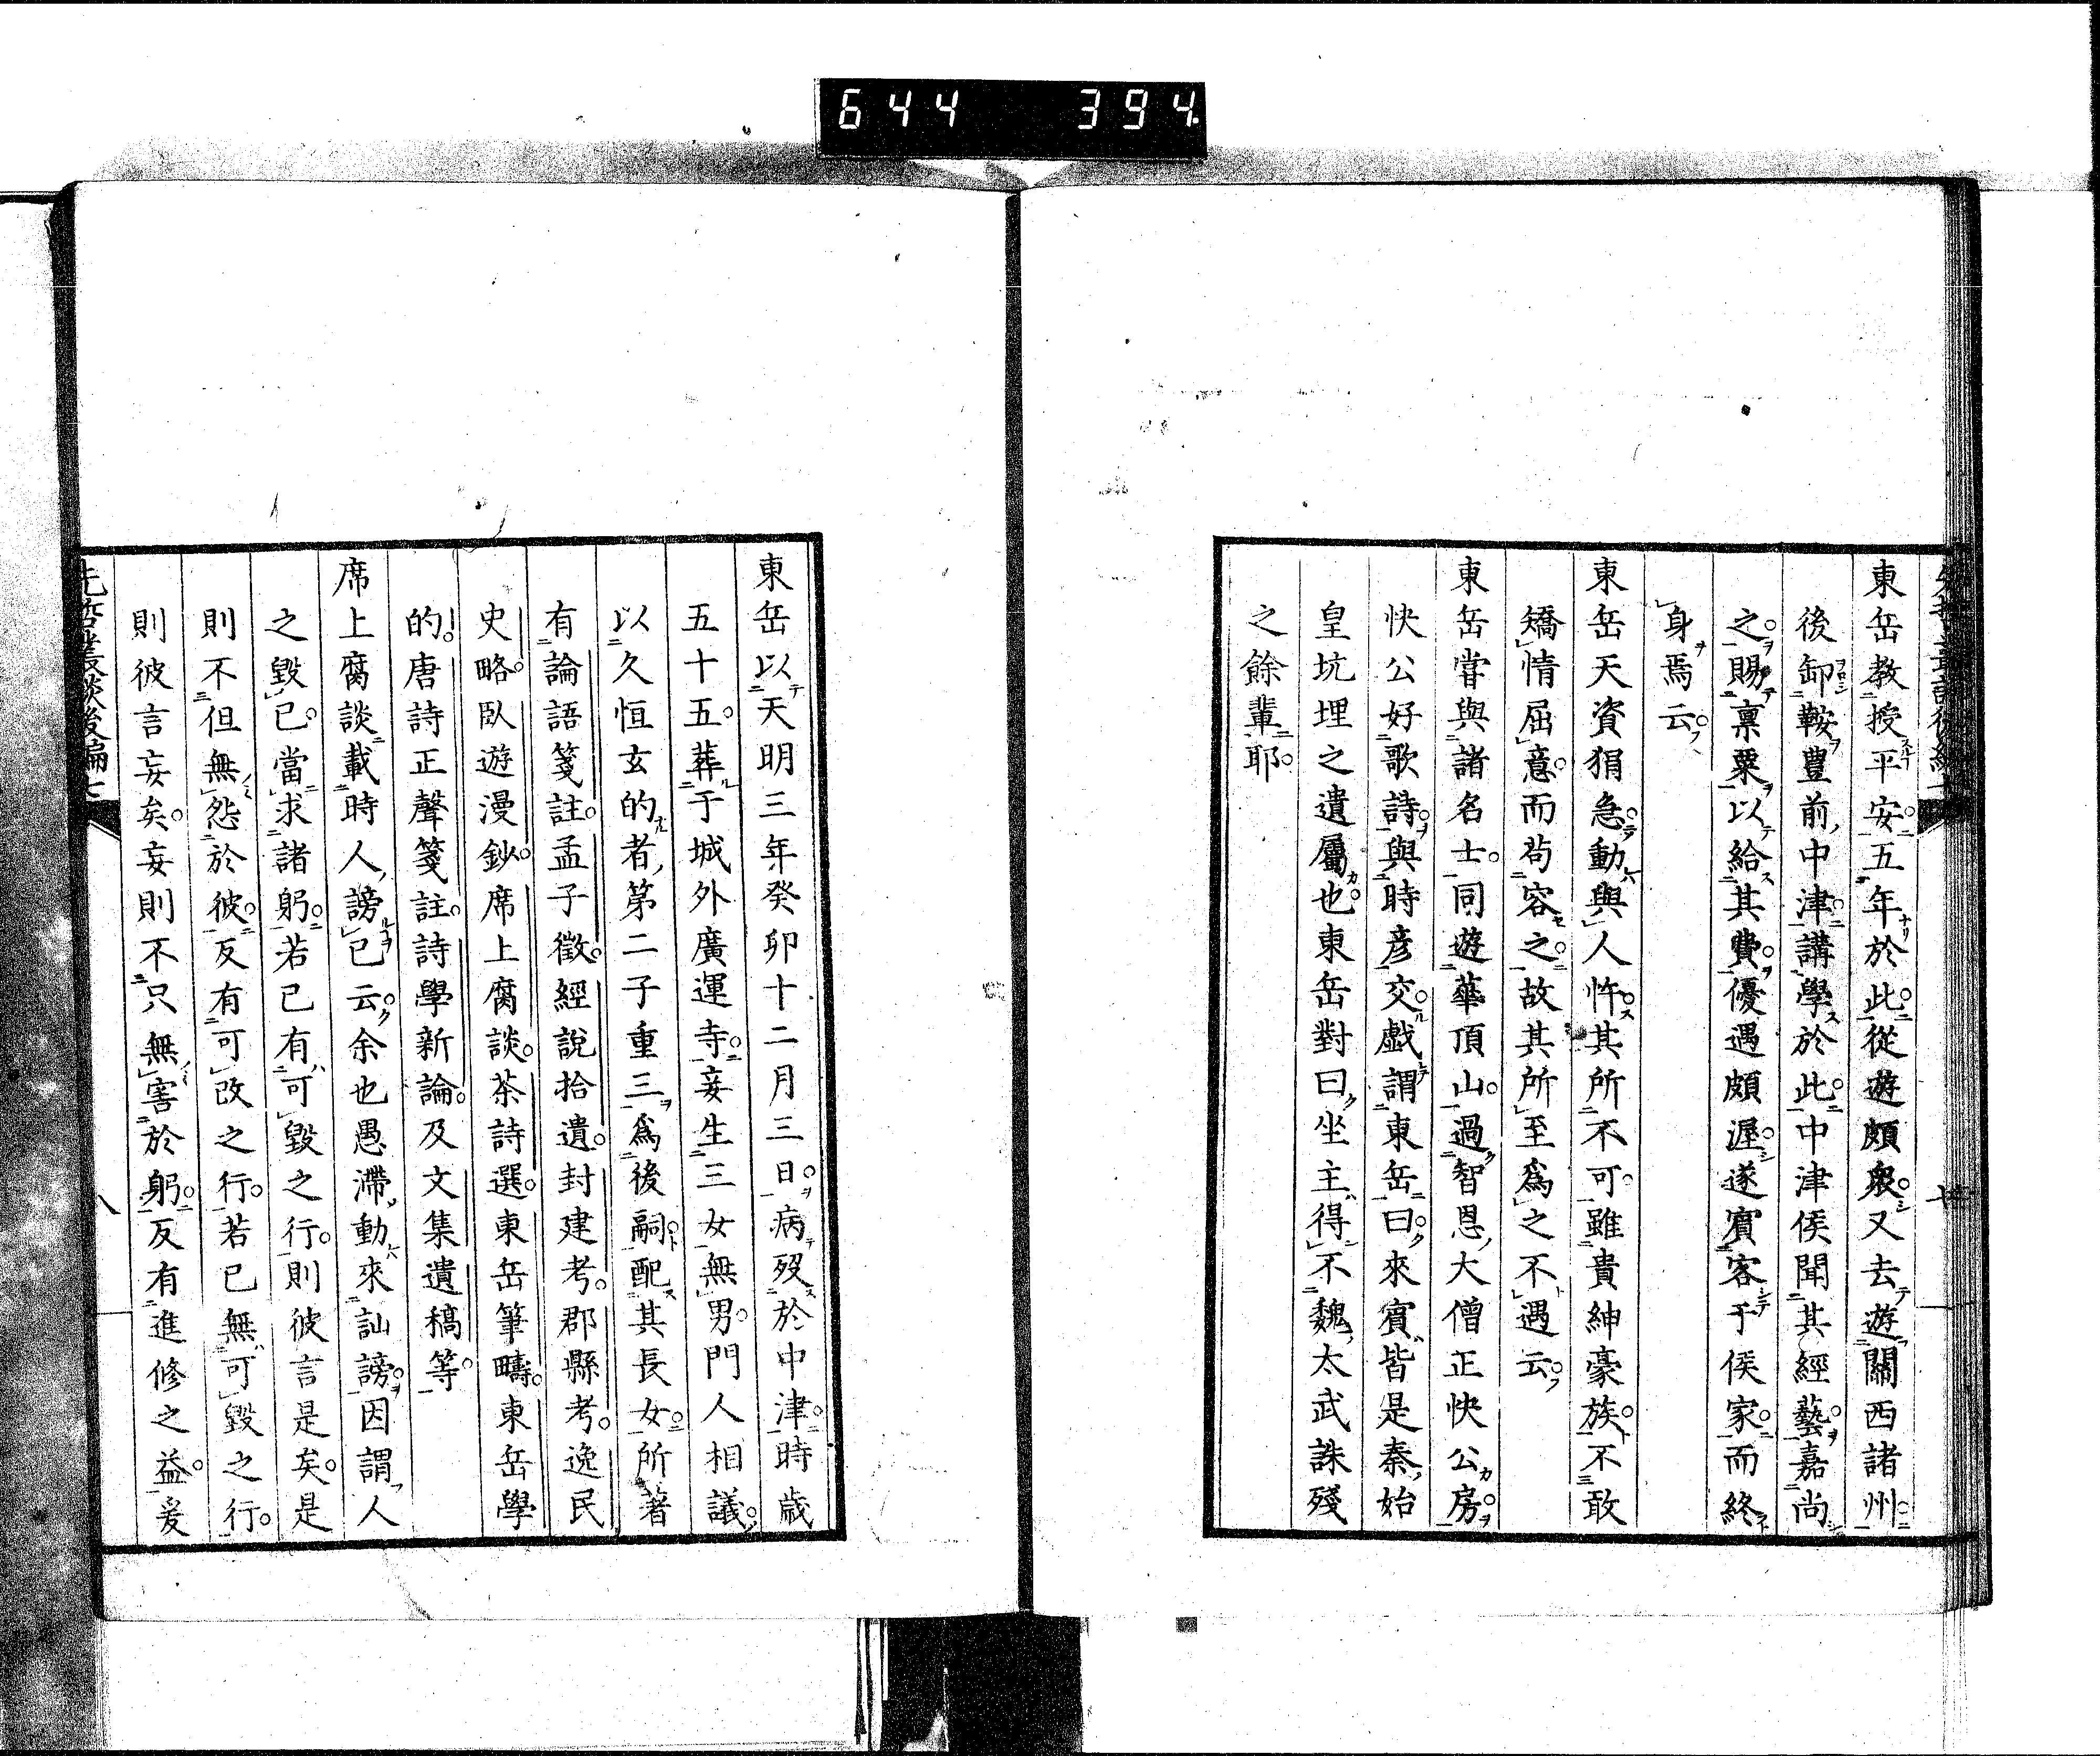 644 394
東岳教授平安五年於此從遊頗衆又去遊關西諸州
後卸鞍豊前中津講學於此中津侯聞其經藝嘉尚
之賜稟粟以給其費優遇頗渥遂賓客于侯家而終
身焉云
東岳天資狷急動與人忤其所不可雖貴紳豪族不敢
矯情屈意而茍容之故其所至爲之不遇云
東岳甞與諸名士同遊華頂山過智恩大僧正快公房
快公好歌詩與時彦交戲謂東岳曰來賓皆是秦始
皇坑埋之遺屬也東岳對曰坐主得不魏太武誅殘
之餘輩耶
東岳以天明三年癸卯十二月三日病歿於中津時歳
五十五葬于城外廣運寺妾生三女無男門人相議
以久恒玄的者第二子重三爲後嗣配其長女所著
有論語箋註孟子徵經說拾遺封建考郡縣考逸民
史略臥遊漫鈔席上腐談茶詩選東岳筆疇東岳學
的唐詩正聲箋註詩學新論及文集遺稿等
席上腐談載時人謗已云余也愚滯動來訕謗因謂人
之毀已當求諸躬若已有可毀之行則彼言是矣是
則不但無怨於彼反有可改之行若已無可毀之行
則彼言妄矣妄則不只無害於躬反有進修之益爰
先哲叢談後編七
八